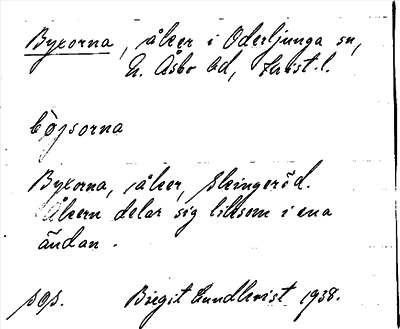 Byxorna, åker i Oderljunga sn,
N. Åsbo hd, Krist. l.
bøjsorna
Byxorna, åker, Skingeröd.
Åkern delar sig liksom i ena
ändan.
sos. Birgit Lundkvist 1938.